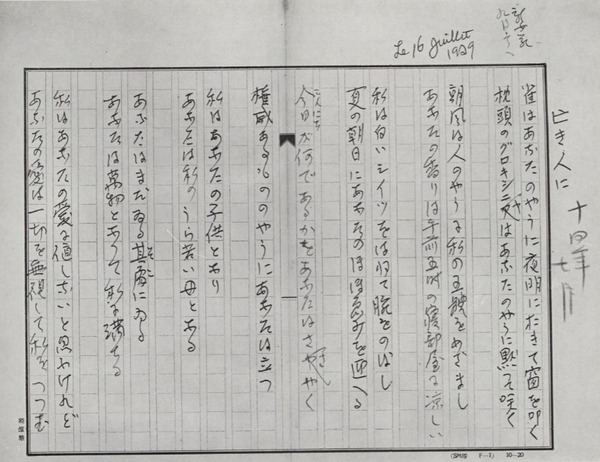 新女苑
九月号へ
Le 16 Juillet
1939
亡き人に
十四年七月
雀はあなたのやうに夜明におきて窗を叩く
枕頭のグロキシニヤはあなたのやうに黙つて咲く
朝風は人のやうに私の五体をめざまし
あなたの香りは午前五時の寝部屋に涼しい
私は白いシイツをはねて腕をのばし
夏の朝日にあなたのほほゑみを迎へる
今日が何であるかをあなたはささやく
権威あるもののやうにあなたは立つ
私はあなたの子供となり
あなたは私のうら若い母となる
あなたはまだゐる其處にゐる
あなたは萬物となつて私に満ちる
私はあなたの愛に値しないと思ふけれど
あなたの愛は一切を無視して私をつつむ
10—20